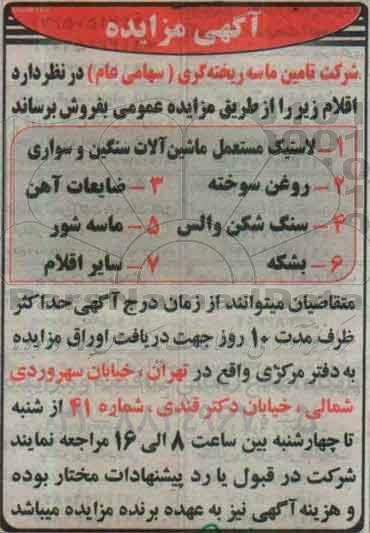 آگهی مزایده
شرکت تامین ماسه ریخته گری ( سهامی عام ) در نظر دارد
اقلام زیر را از طریق مزایده عمومی بفروش برساند
۱- لاستیک مستعمل ماشین آلات سنگین و سواری
۲- روغن سوخته ۳- ضایعات آهن
۴- سنگ شکن والس ۵- ماسه شور
۶- بشکه ۷- سایر اقلام
متقاضیان میتوانند از زمان درج آگهی حداکثر
ظرف مدت ۱۰ روز جهت دریافت اوراق مزایده
به دفتر مرکزی واقع در تهران ، خیابان سهروردی
شمالی ، خیابان دکتر قندی ، شماره ۴۱ از شنبه
تا چهارشنبه بین ساعت ۸ الی ۱۶ مراجعه نمایند
شرکت در قبول یا رد پیشنهادات مختار بوده
و هزینه آگهی نیز به عهده برنده مزایده میباشد